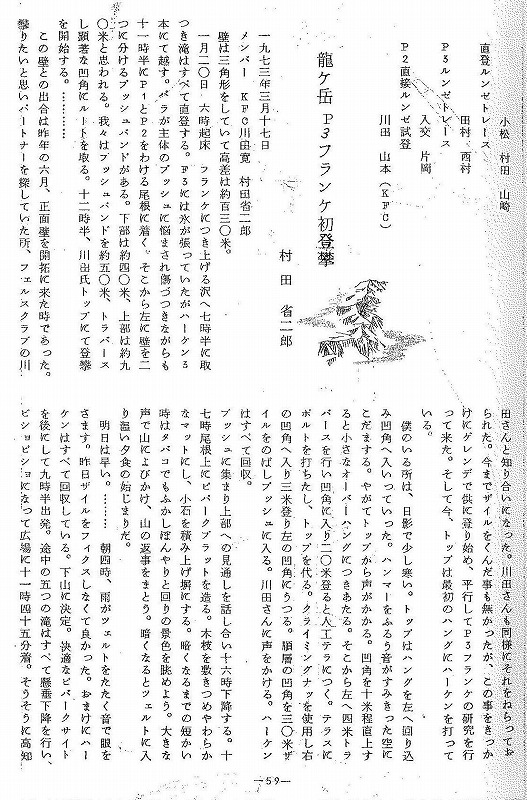 直登ルンゼトレース
小松 村田 山崎
P3ルンゼトレース
田村 西村
入交 片岡
P2直接ルンゼ試登
川田 山本(KFC)
龍ケ岳 P3フランケ初登攀
村田 省二郎
一九七三年三月十七日
メンバー KFC川田寛 村田省二郎
壁は三角形をしていて高差は約百三〇米。
一月二〇日 六時起床 フランケにつき上げる沢へ七時半に取
つき滝はすべて直登する。F3には氷が張っていたがハーケン3
本にて越す。バラが主体のブッシュに悩まされ傷づつきながらも
十一時半にP1とP2をわける尾根に着く。そこから左に壁を二
つに分けるブッシュバンドがある。下部は約四〇米、上部は約九
〇米と思われる。我々はブッシュバンドを約五〇米、トラバース
し顕著な凹角にルートを取る。十二時半、川田氏トップにて登攀
を開始する。…………
この壁との出合は昨年の六月、正面壁を開拓に来た時であった。
攀りたいと思いパートナーを探していた所、フェルスクラブの川
田さんと知り合いになった。川田さんも同様にそれをねらってお
られた。今までザイルをくんだ事も無かったが、この事をきっか
けにゲレンデで供に登り始め、平行してP3フランケの研究を行
って来た。そして今、トップは最初のハングにハーケンを打って
いる。
僕のいる所は、日影で少し寒い。トップはハングを左へ回り込
み凹角へ入っていった。ハンマーをふるう音がすみきった空に
こだまする。やがてトップから声がかかる。凹角を十米程直上す
ると小さなオーバーハングにつきあたる。そこから左へ四米トラ
バースを行い凹角に入り二〇米登ると人工テラにつく。テラスに
ボルトを打ちたし、トップを代る。クライミングナッツを使用し右
の凹角へ入り三米登り左の凹角にうつる。順層の凹角を三〇米ザ
イルをのばしブッシュに入る。川田さんに声をかける。ハーケン
はすべて回収。
ブッシュに集まり上部への見通しを話し合い十六時下降する。十
七時尾根上にビバークプラットを造る。木枝を敷きつめやわらか
なマットにし、小石を積み上げ塀にする。暗くなるまでの短かい
時はタバコでもふかしぼんやりと回りの景色を眺めよう。大きな
声で山によびかけ、山の返事をまとう。暗くなるとツェルトに入
り温い夕食の始じまりだ。
明日は早い。……… 朝四時、雨がツェルトをたたく音で眼を
さます。昨日ザイルをフィクスしなくて良かった。おまけにハー
ケンはすべて回収している。下山に決定。快適なビバークサイト
を後にして九時半出発。途中の五つの滝はすべて懸垂下降を行い、
ビショビショになって広場に十一時四十五分着。そうそうに高知
—59—